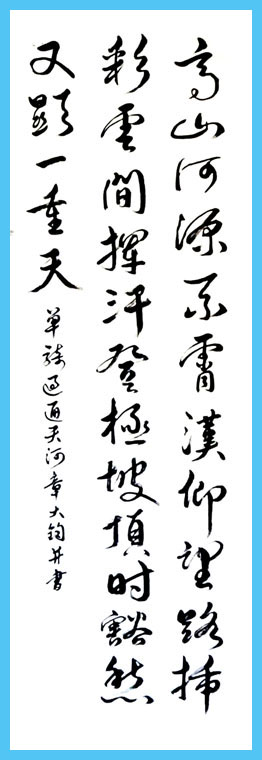 高山河源系霄漢仰望路插
彩雲間揮汗登極坡頂时豁然
又顯一重天
單騎過通天河章大鈞并書